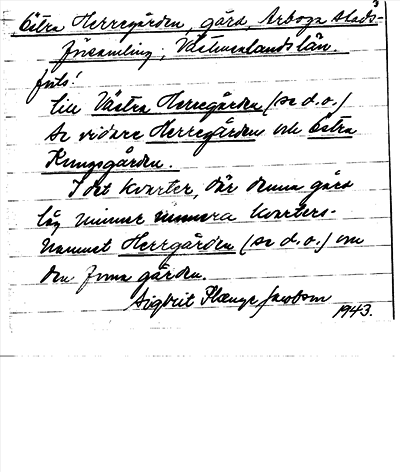 Östra Herregården, gård, Arboga stads-
församling, Västmanlands län.
till Västra Herregården (se d.o.)
Se vidare Herregården och Östra
Kungsgården.
I det kvarter, där denna gård
låg minner numera kvarters-
namnet Herrgården (se d.o.) om
den forna gården.
Sigbrit Plænge Jacobson
1943.